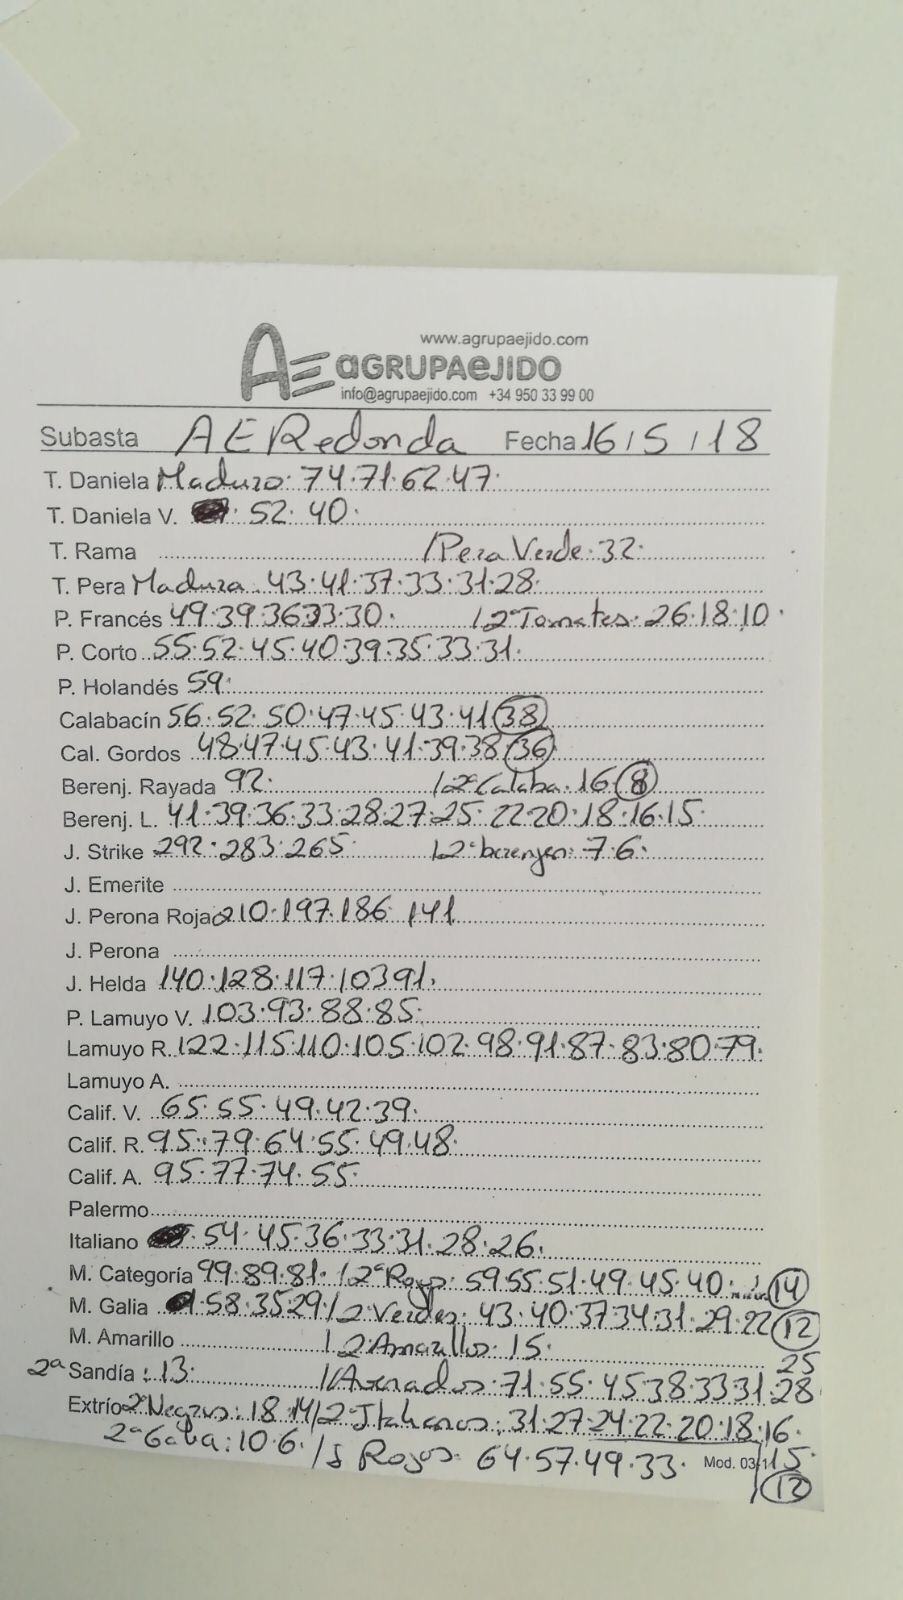 www.agrupaejido.com
AE aGRUPAeJIDO
info@agrupaejido.com +34 950 33 99 00
Subasta AERedonda Fecha 16/5/18
T. Daniela Maduro: 74.71.62.47.
T. Daniela V. 52. 40.
T. Rama /Pera Verde. 32.
T. Pera Madura. 43.41.37.33.31.28.
P. Francés 49.39.36.33.30. /2ª Tomates. 26.18.10.
P. Corto 55.52.45.40.39.35.33.31.
P. Holandés 59.
Calabacín 56.52.50.47.45.43.41 38
Cal. Gordos 48.47.45.43.41.39.38 36
Berenj. Rayada 92. /2ª Calaba. 16. 8
Berenj. L. 41.39.36.33.28.27.25.22.20.18.16.15.
J. Strike 292.283.265. /2ª berenjen: 7.6.
J. Emerite
J. Perona Roja 210.197.186 141
J. Perona
J. Helda 140.128.117.103 91.
P. Lamuyo V. 103.93.88.85.
Lamuyo R. 122.115.110.105.102.98.91.87.83.80.79.
Lamuyo A.
Calif. V. 65.55.49.42.39.
Calif. R. 95.79.64.55.49.48.
Calif. A. 95.77.74.55.
Palermo
Italiano 54.45.36.33.31.28.26.
M. Categoría 99.89.81. /2ª Rojos: 59.55.51.49.45.40. 14
M. Galia 58.35 29 /2 Verdes: 43.40.37.34.31.29.22 12
M. Amarillo /2 Amarillos. 15.
25
2ª Sandía: 13. /Asenados: 71.55.45.38.33.31.28
Extrío 2ª Negros: 18.14 /2 Italianos: 31.27.24.22.20.18.16.
2ª Galia: 10.6. / Rojos. 64.57.49.33. Mod. 03 15.
12